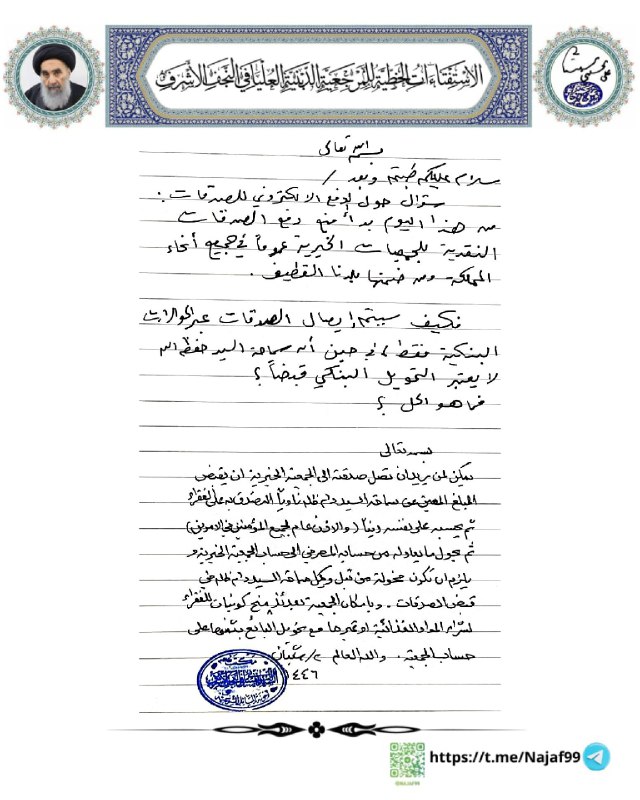 الاستفتاءات الخطية للمرجعية الدينية العليا في النجف الأشرف
بسمه تعالى
سلام عليكم طبتم وبعد /
سؤال حول الدفع الالكتروني للصدقات :
من هذا اليوم بدأ منع دفع الصدقات
النقدية للجمعيات الخيرية عموماً في جميع أنحاء
المملكة ومن ضمنها بلدنا القطيف .
فكيف سيتم إيصال الصدقات عبر الحوالات
البنكية فقط ، في حين أن سماحة السيد حفظه الله
لا يعتبر التحويل البنكي قبضاً ؟
فما هو الحل ؟
بسمه تعالى
يمكن لمن يريد ان تصل صدقته الى الجمعية الخيرية ان يقبض
المبلغ المعين عن سماحة السيد دام ظله ناوياً التصدق به على الفقراء
ثم يحسبه على نفسه ديناً (والاذن عام لجميع المؤمنين في الامرين)
ثم يحول ما يعادله من حسابه المصرفي الى حساب الجمعية الخيرية و
يلزم ان تكون مخولة من قبل وكيل سماحة السيد دام ظله في
قبض الصدقات . وبامكان الجمعية بعدئذ منح كوبونات للفقراء
لشراء المواد الغذائية او غيرها مع تحويل البائع بثمنها على
حساب الجمعية . والله العالم ٢/شعبان
١٤٤٦
https://t.me/Najaf99